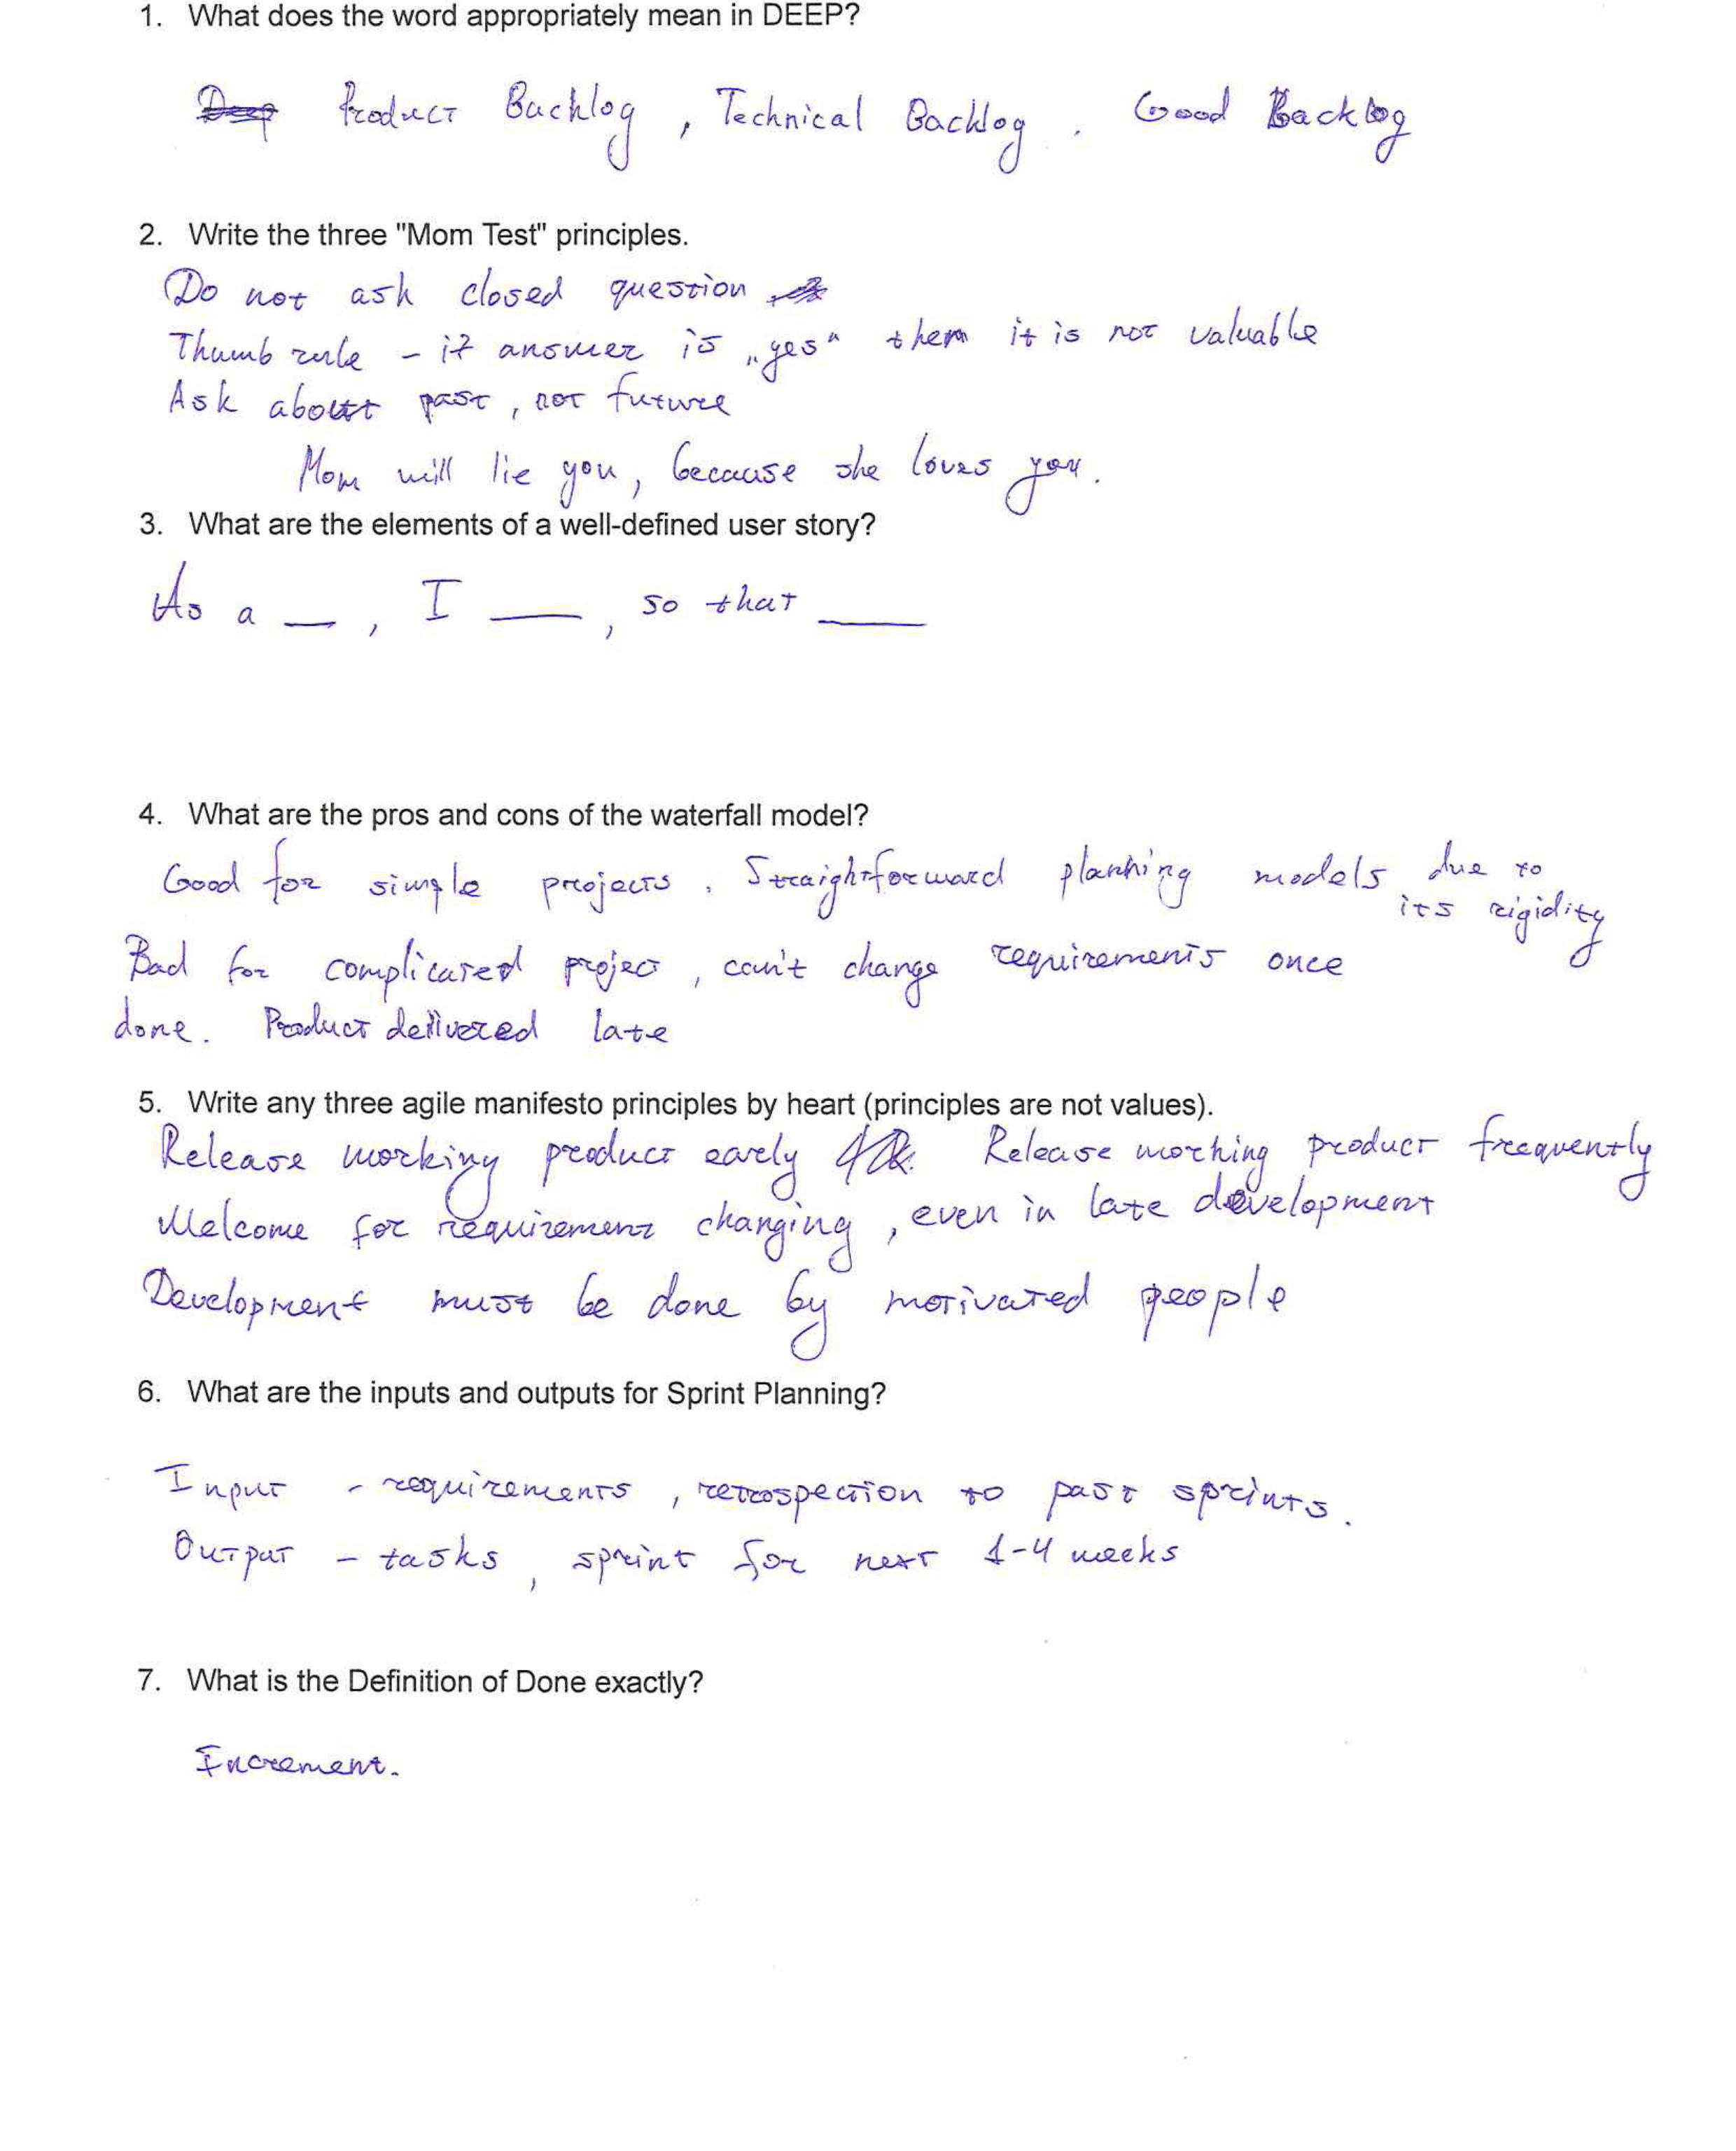 1. What does the word appropriately mean in DEEP?
Deep Product Backlog, Technical Backlog. Good Backlog
2. Write the three "Mom Test" principles.
Do not ask closed question
Thumb rule - if answer is „yes“ them it is not valuable
Ask about past, not future
Mom will lie you, because she loves you.
3. What are the elements of a well-defined user story?
As a __, I __, so that __
4. What are the pros and cons of the waterfall model?
Good for simple projects. Straightforward planning models due to
its rigidity
Bad for complicated project, can't change requirements once
done. Product delivered late
5. Write any three agile manifesto principles by heart (principles are not values).
Release working product early Release working product frequently
Welcome for requirement changing, even in late development
Development must be done by motivated people
6. What are the inputs and outputs for Sprint Planning?
Input - requirements, retrospection to past sprints.
Output - tasks, sprint for next 1-4 weeks
7. What is the Definition of Done exactly?
Increment.